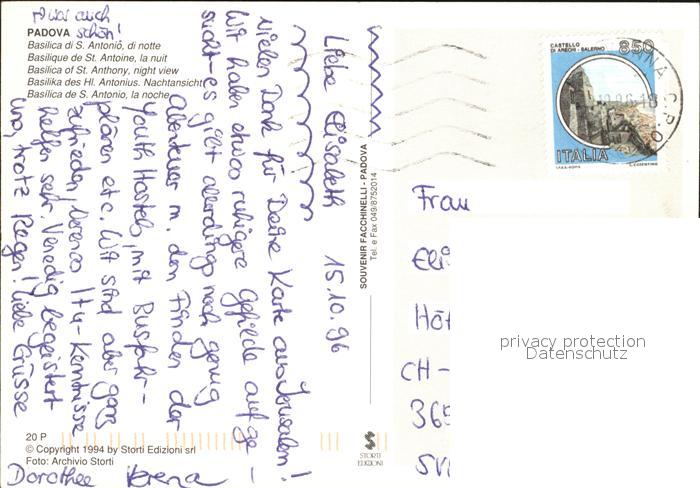 PADOVA
Basilica di S. Antonio, di notte
Basilique de St. Antoine, la nuit
Basilica of St. Anthony, night view
Basilika des Hl. Antonius. Nachtansicht
Basílica de S. Antonio, la noche
Liebe Elisabeth 15.10.96
vielen Dank für Deine Karte aus Jerusalem!
Wir haben etwas ruhigere Gefilde aufge-
sucht - es gibt allerdings noch genug
Abenteuer m. den Finden der
Youth Hostels, mit Busfahr-
plänen etc. Wir sind aber ganz
zufrieden, Verenas It.-Kenntnisse
helfen sehr. Venedig begeistert
uns, trotz Regen! Liebe Grüsse
Dorothee Verena
war auch
schön!
SOUVENIR FACCHINELLI - PADOVA
Tel. e Fax 049/8752014
20 P
© Copyright 1994 by Storti Edizioni srl
Foto: Archivio Storti
STORTI
EDIZIONI
CASTELLO
DI ARECHI - SALERNO
850
ITALIA
Frau
Eli
Hôt
CH -
365
privacy protection
Datenschutz